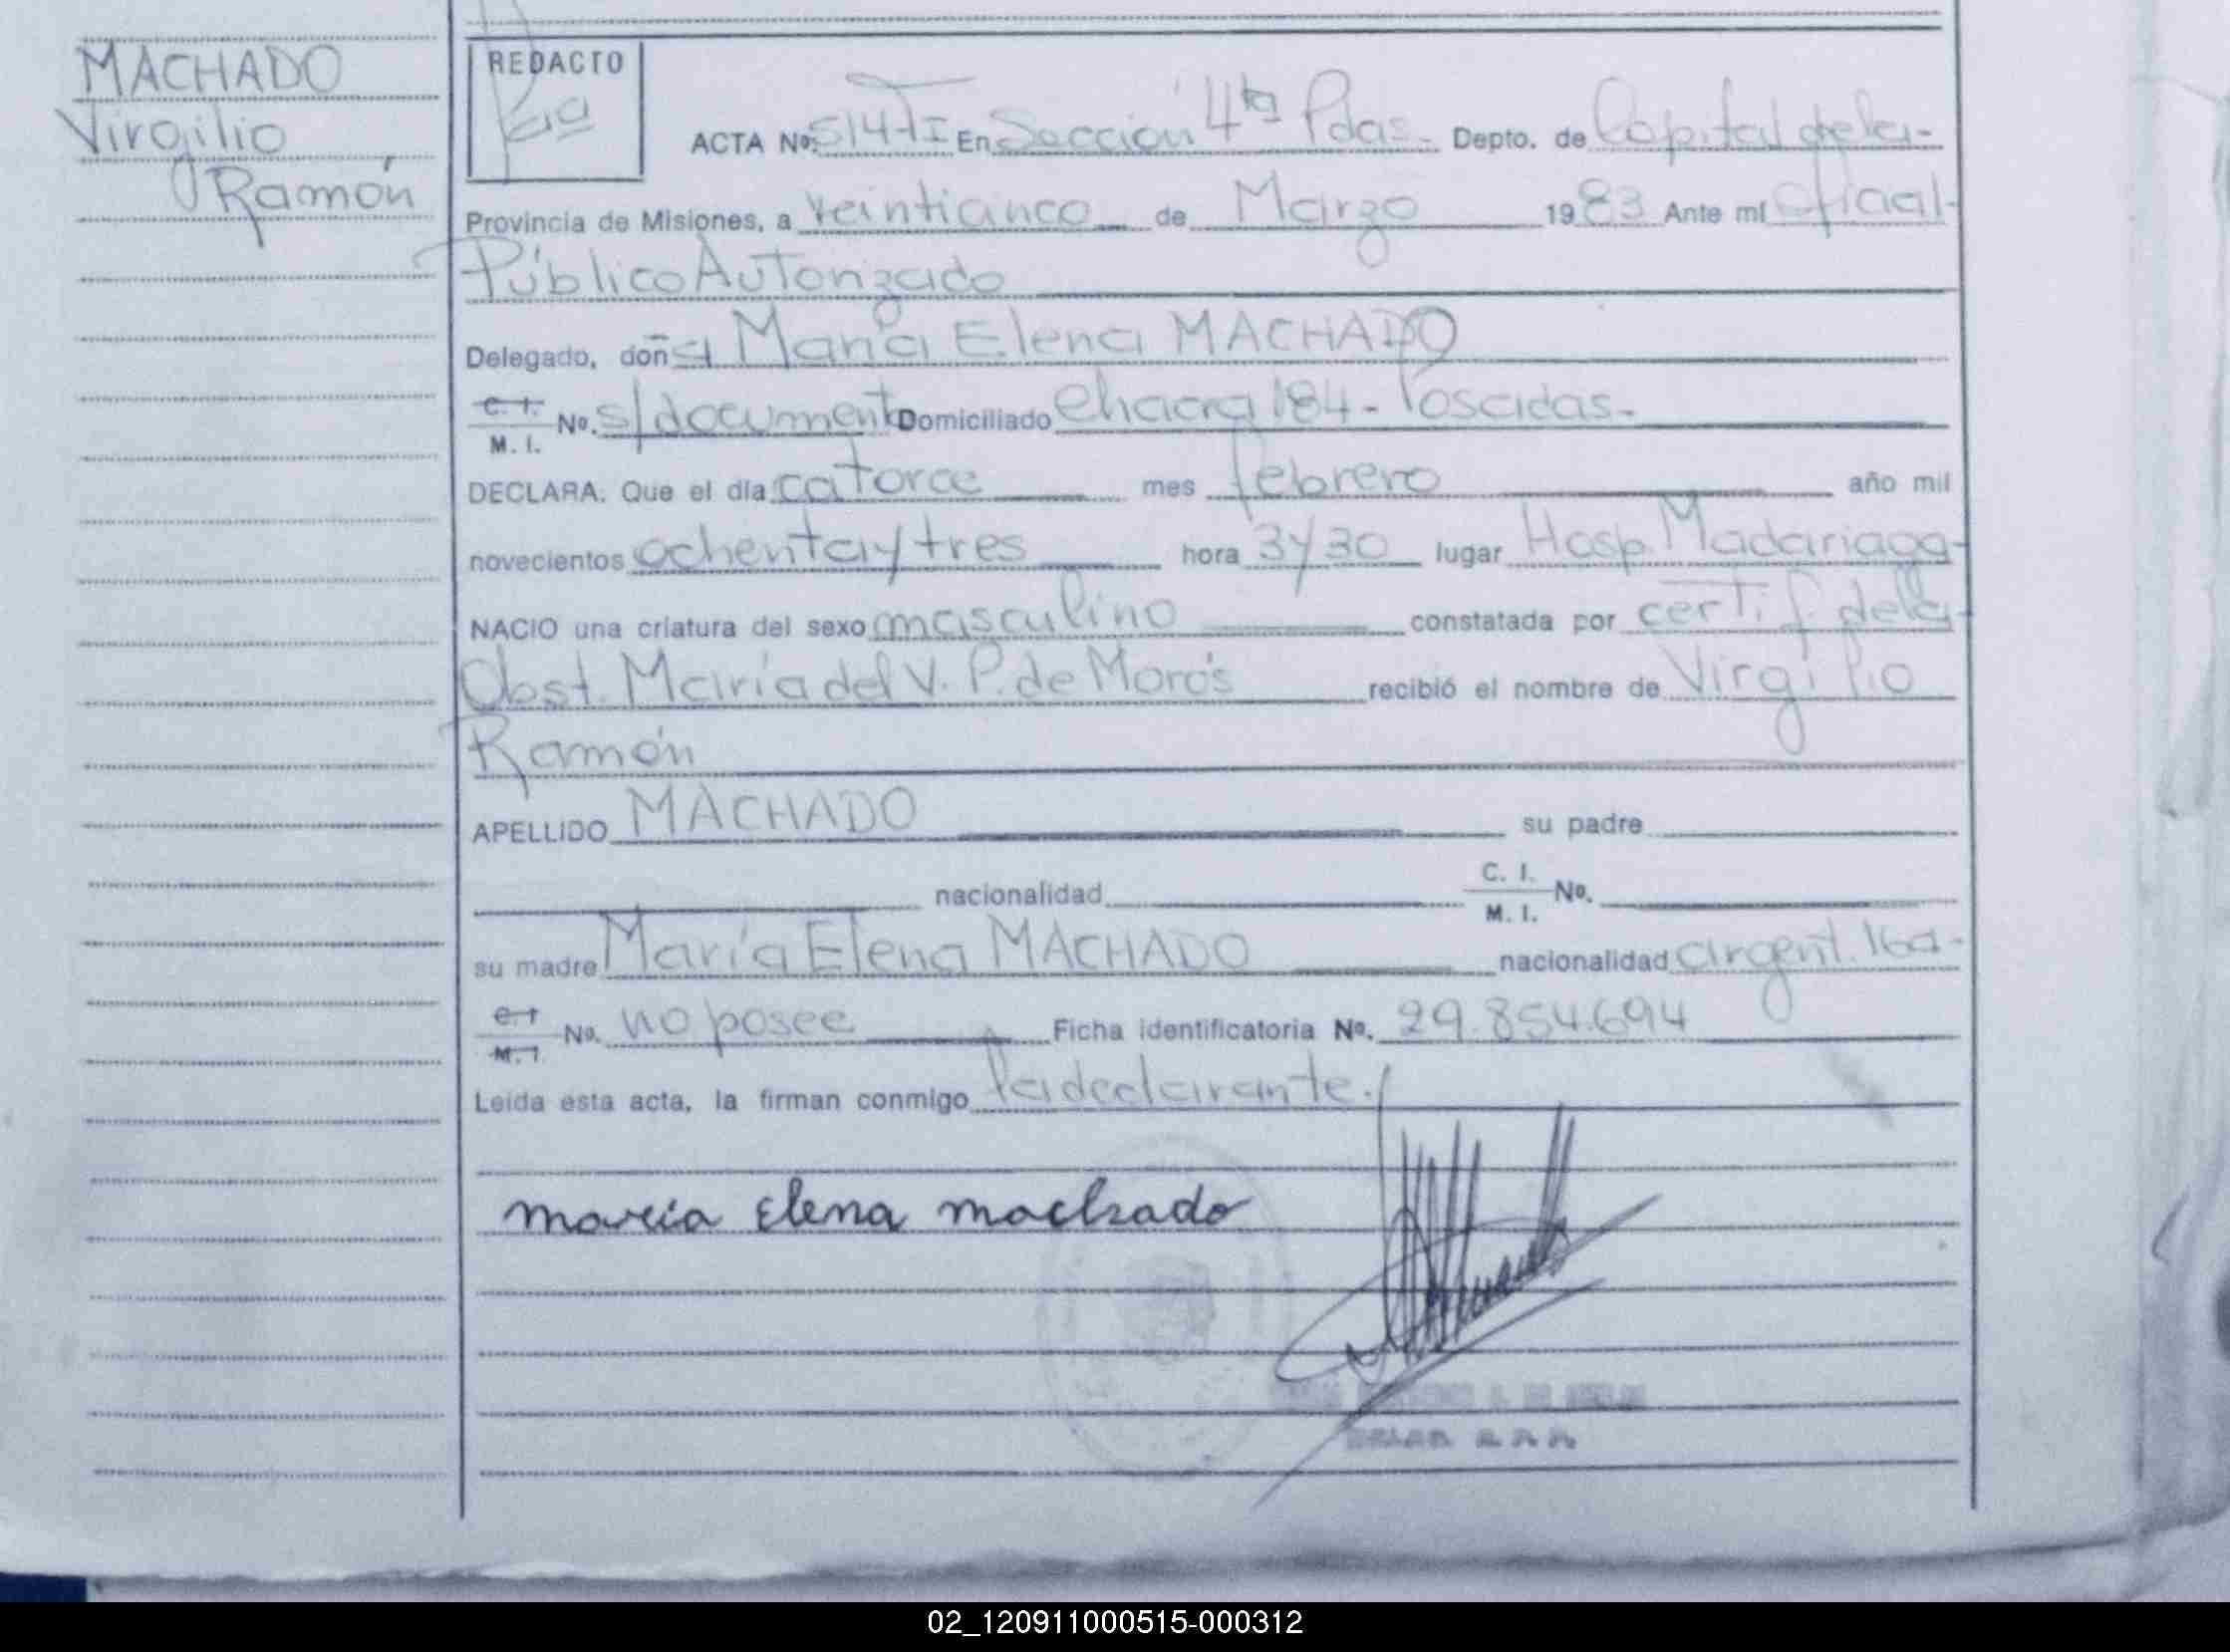 MACHADO
Virgilio
Ramón
REDACTO
ACTA Nº. 514-TI En Sección 4ta Pdas.- Depto. de Capital de la-
Provincia de Misiones, a veinticinco de Marzo 1983 Ante mí Oficial-
Público Autorizado
Delegado, doña María Elena MACHADO
C. I.
M. I. Nº. s/documento Domiciliado Chacra 184- Posadas.-
DECLARA: Que el día catorce mes febrero año mil
novecientos ochenta y tres hora 3y30 lugar Hosp. Madariaga-
NACIO una criatura del sexo masculino constatada por certif. de la-
Obst. María del V. P. de Morós recibió el nombre de Virgilio
Ramón
APELLIDO MACHADO su padre
nacionalidad C. I.
M. I. Nº.
su madre María Elena MACHADO nacionalidad argent. 16a-
C. I.
M. I. Nº. no posee Ficha identificatoria Nº. 29.854.694
Leída esta acta, la firman conmigo la declarante./
maria Elena machado
02_120911000515-000312